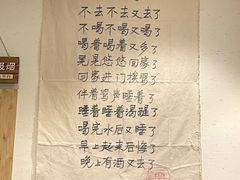 不去不去又去了
不喝不喝又喝了
喝着喝着又多了
晃晃悠悠回家了
回家进门挨骂了
伴着骂声睡着了
睡着睡着渴醒了
喝完水后又睡了
早上起来后悔了
晚上有酒又去了
吸烟